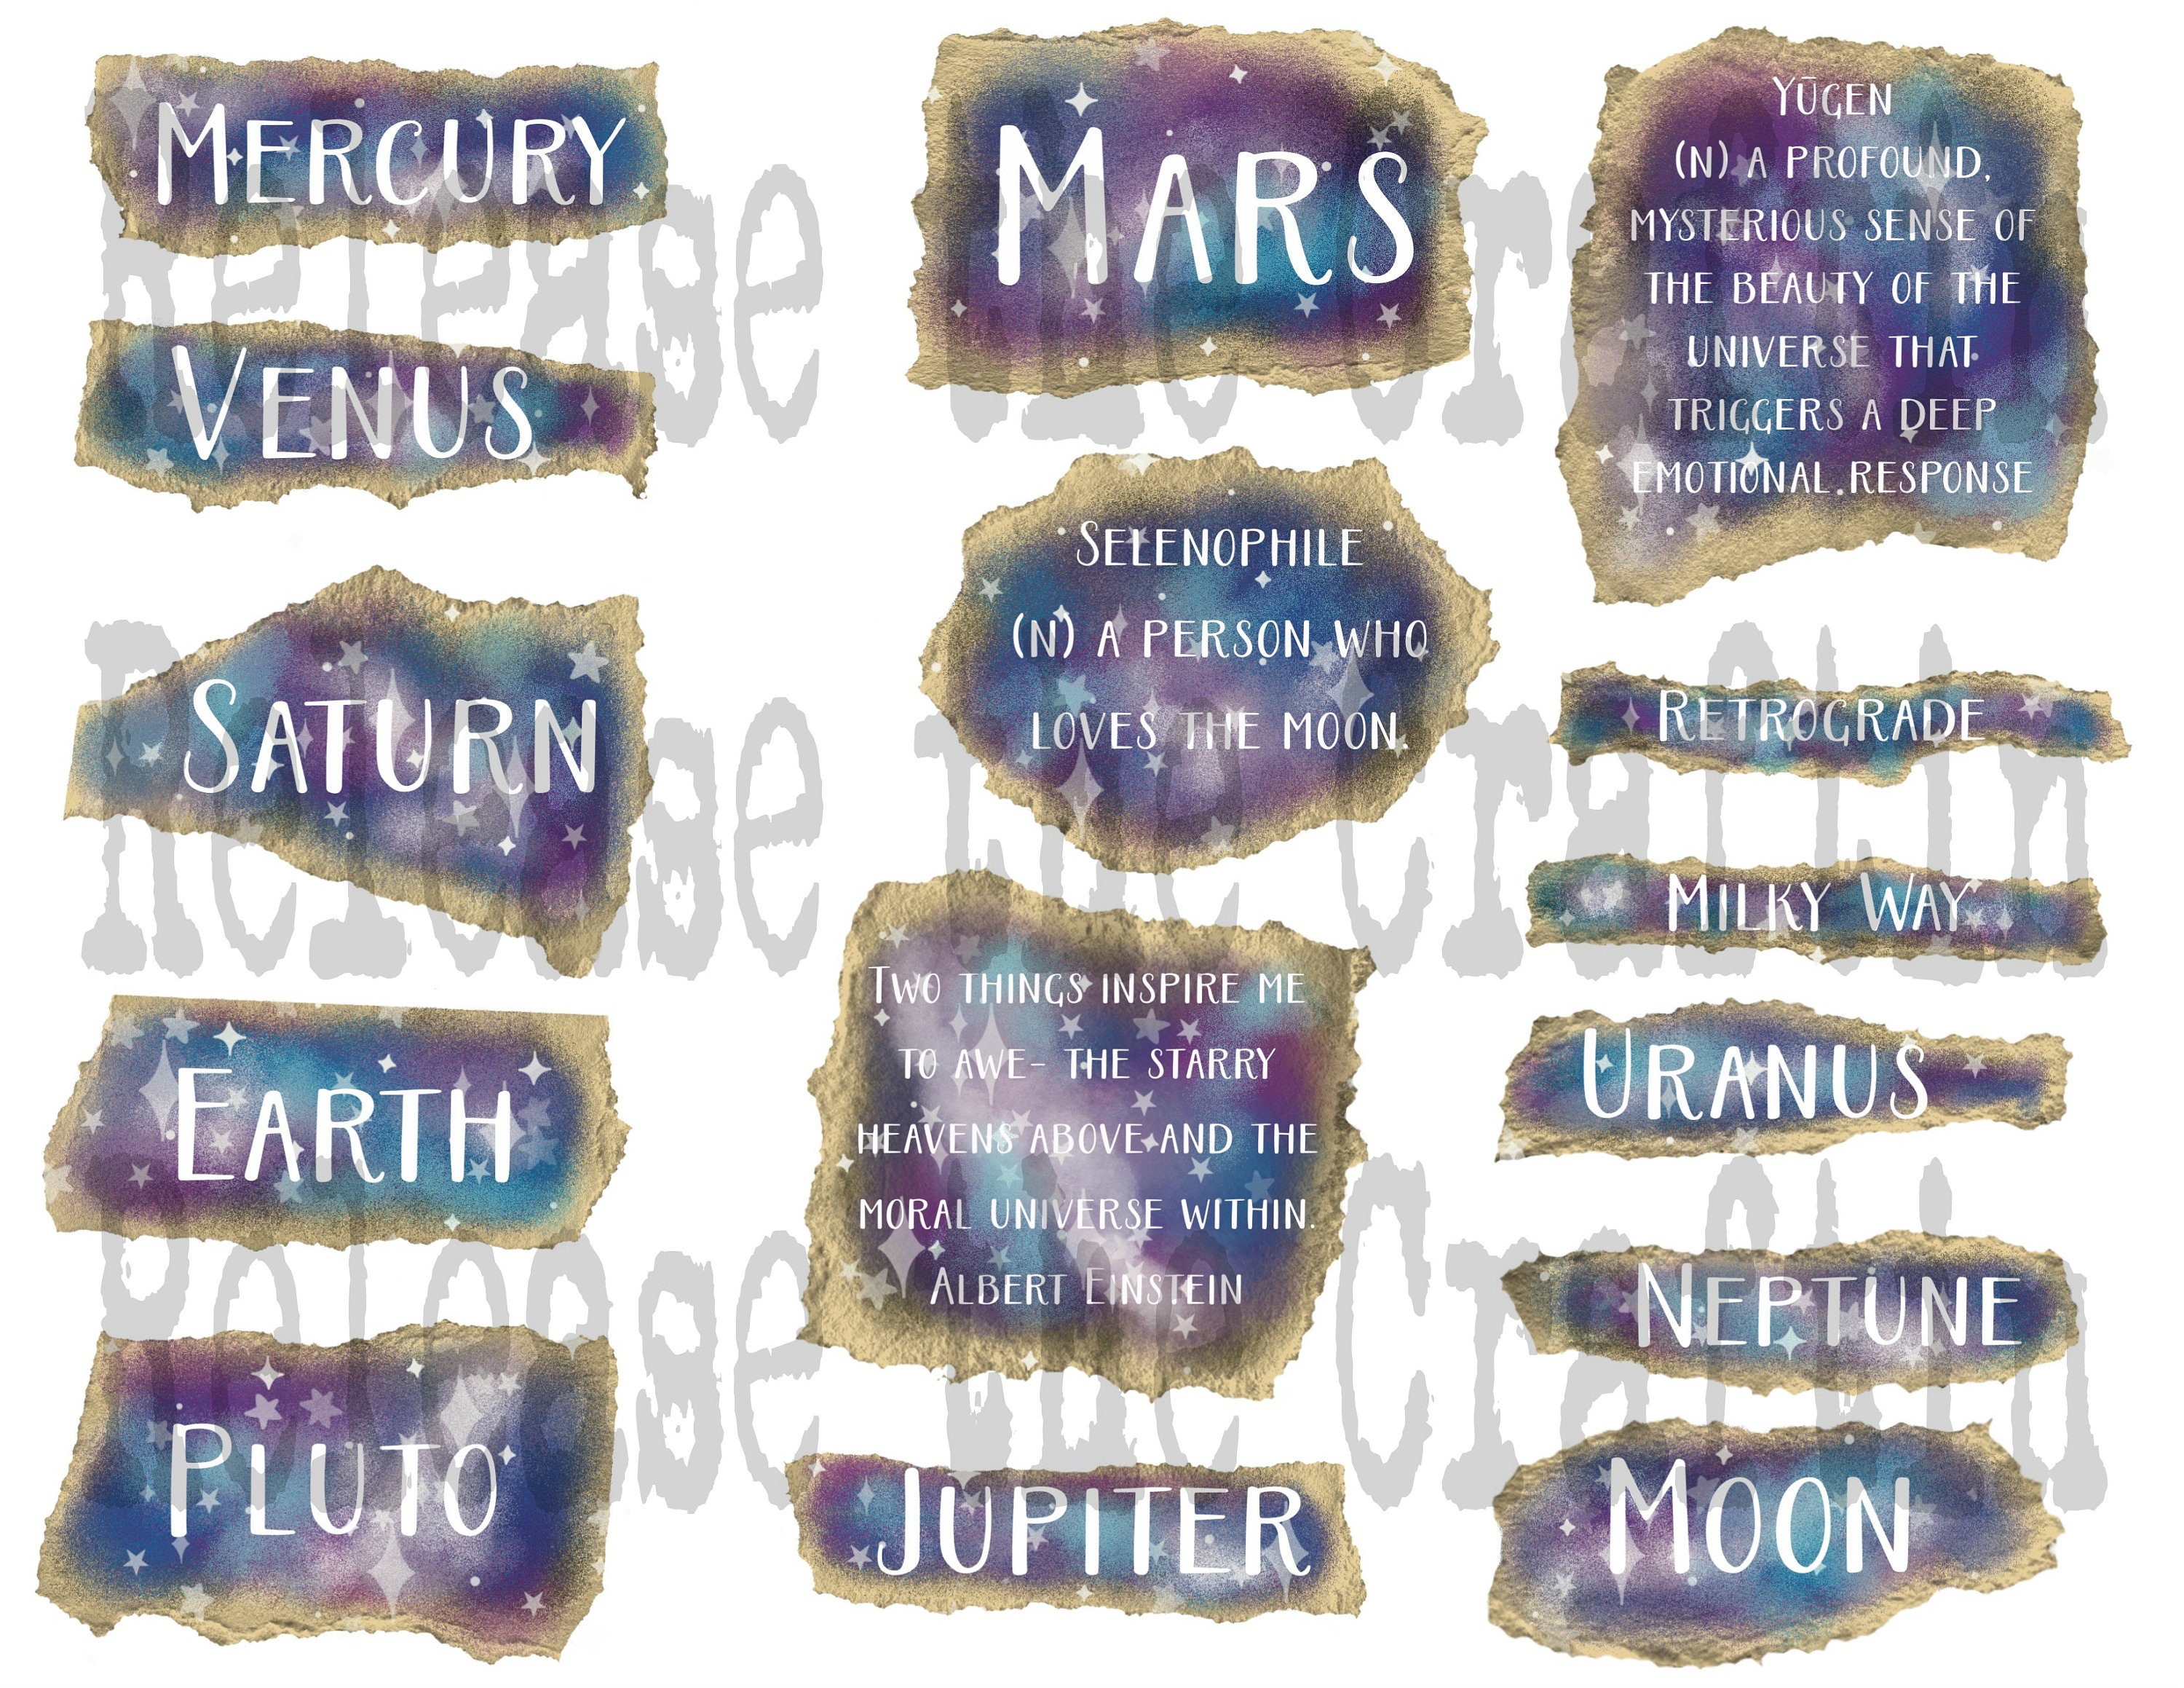 Mercury
Venus
Saturn
Earth
Pluto
Mars
Selenophile
(n) a person who
loves the moon.
Two things inspire me
to awe- the starry
heavens above and the
moral universe within.
Albert Einstein
Jupiter
Yūgen
(n) a profound,
mysterious sense of
the beauty of the
universe that
triggers a deep
emotional response
Retrograde
Milky Way
Uranus
Neptune
Moon
Release the Craftin
Release the Craftin
Release the Craftin